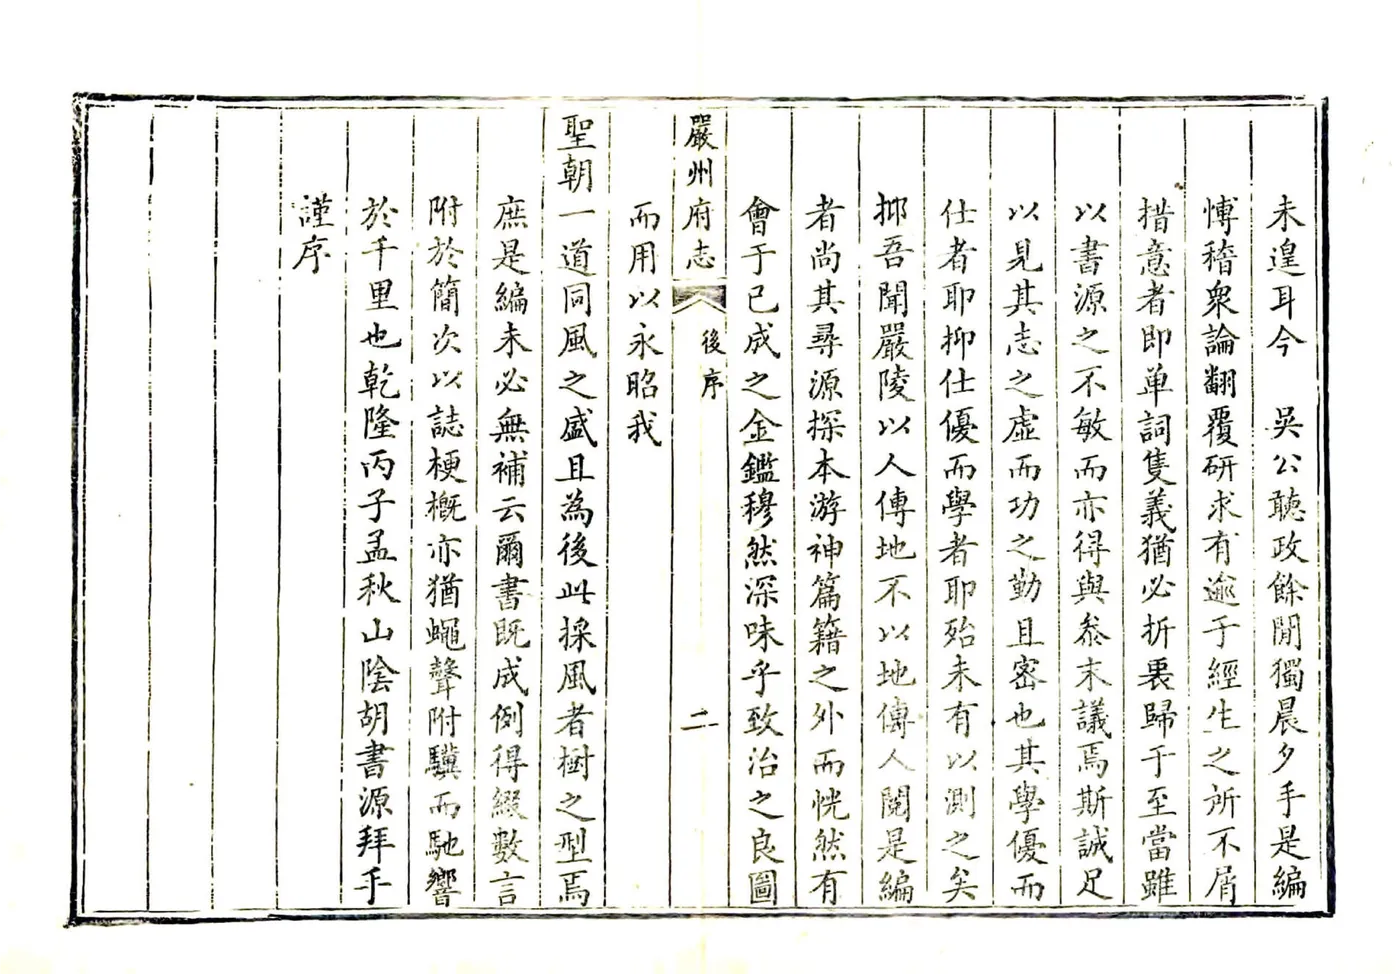 未遑耳今　吳公聽政餘閒獨晨夕手是編
愽稽衆論翻覆研求有逾于經生之所不屑
措意者即单詞隻義猶必折裏歸于至當雖
以書源之不敏而亦得與叅末議焉斯誠足
以見其志之虛而功之勤且密也其學優而
仕者耶抑仕優而學者耶殆未有以測之矣
抑吾聞嚴陵以人傳地不以地傳人閱是編
者尚其尋源探本游神篇籍之外而恍然有
會于已成之金鑑穆然深味乎致治之良圖
嚴州府志
後序
二
而用以永昭我
聖朝一道同風之盛且為後此採風者樹之型焉
庶是編未必無補云爾書既成例得綴數言
附於簡次以誌梗概亦猶蠅聲附驥而馳響
於千里也乾隆丙子孟秋山陰胡書源拜手
謹序